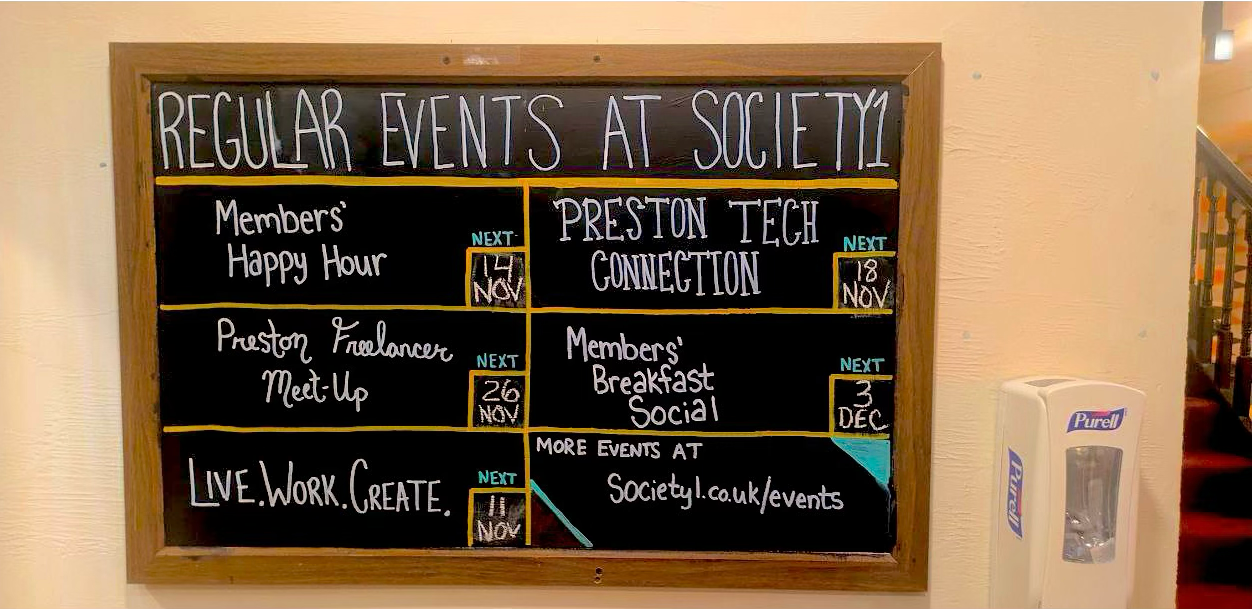 REGULAR EVENTS AT SOCIETY1
Members'
Happy Hour
NEXT
14
NOV
PRESTON TECH
CONNECTION
NEXT
18
NOV
Preston Freelancer
Meet-Up
NEXT
26
NOV
Members'
Breakfast
Social
NEXT
3
DEC
LIVE.WORK.CREATE.
NEXT
11
NOV
MORE EVENTS AT
Society1.co.uk/events
Purell
Purell